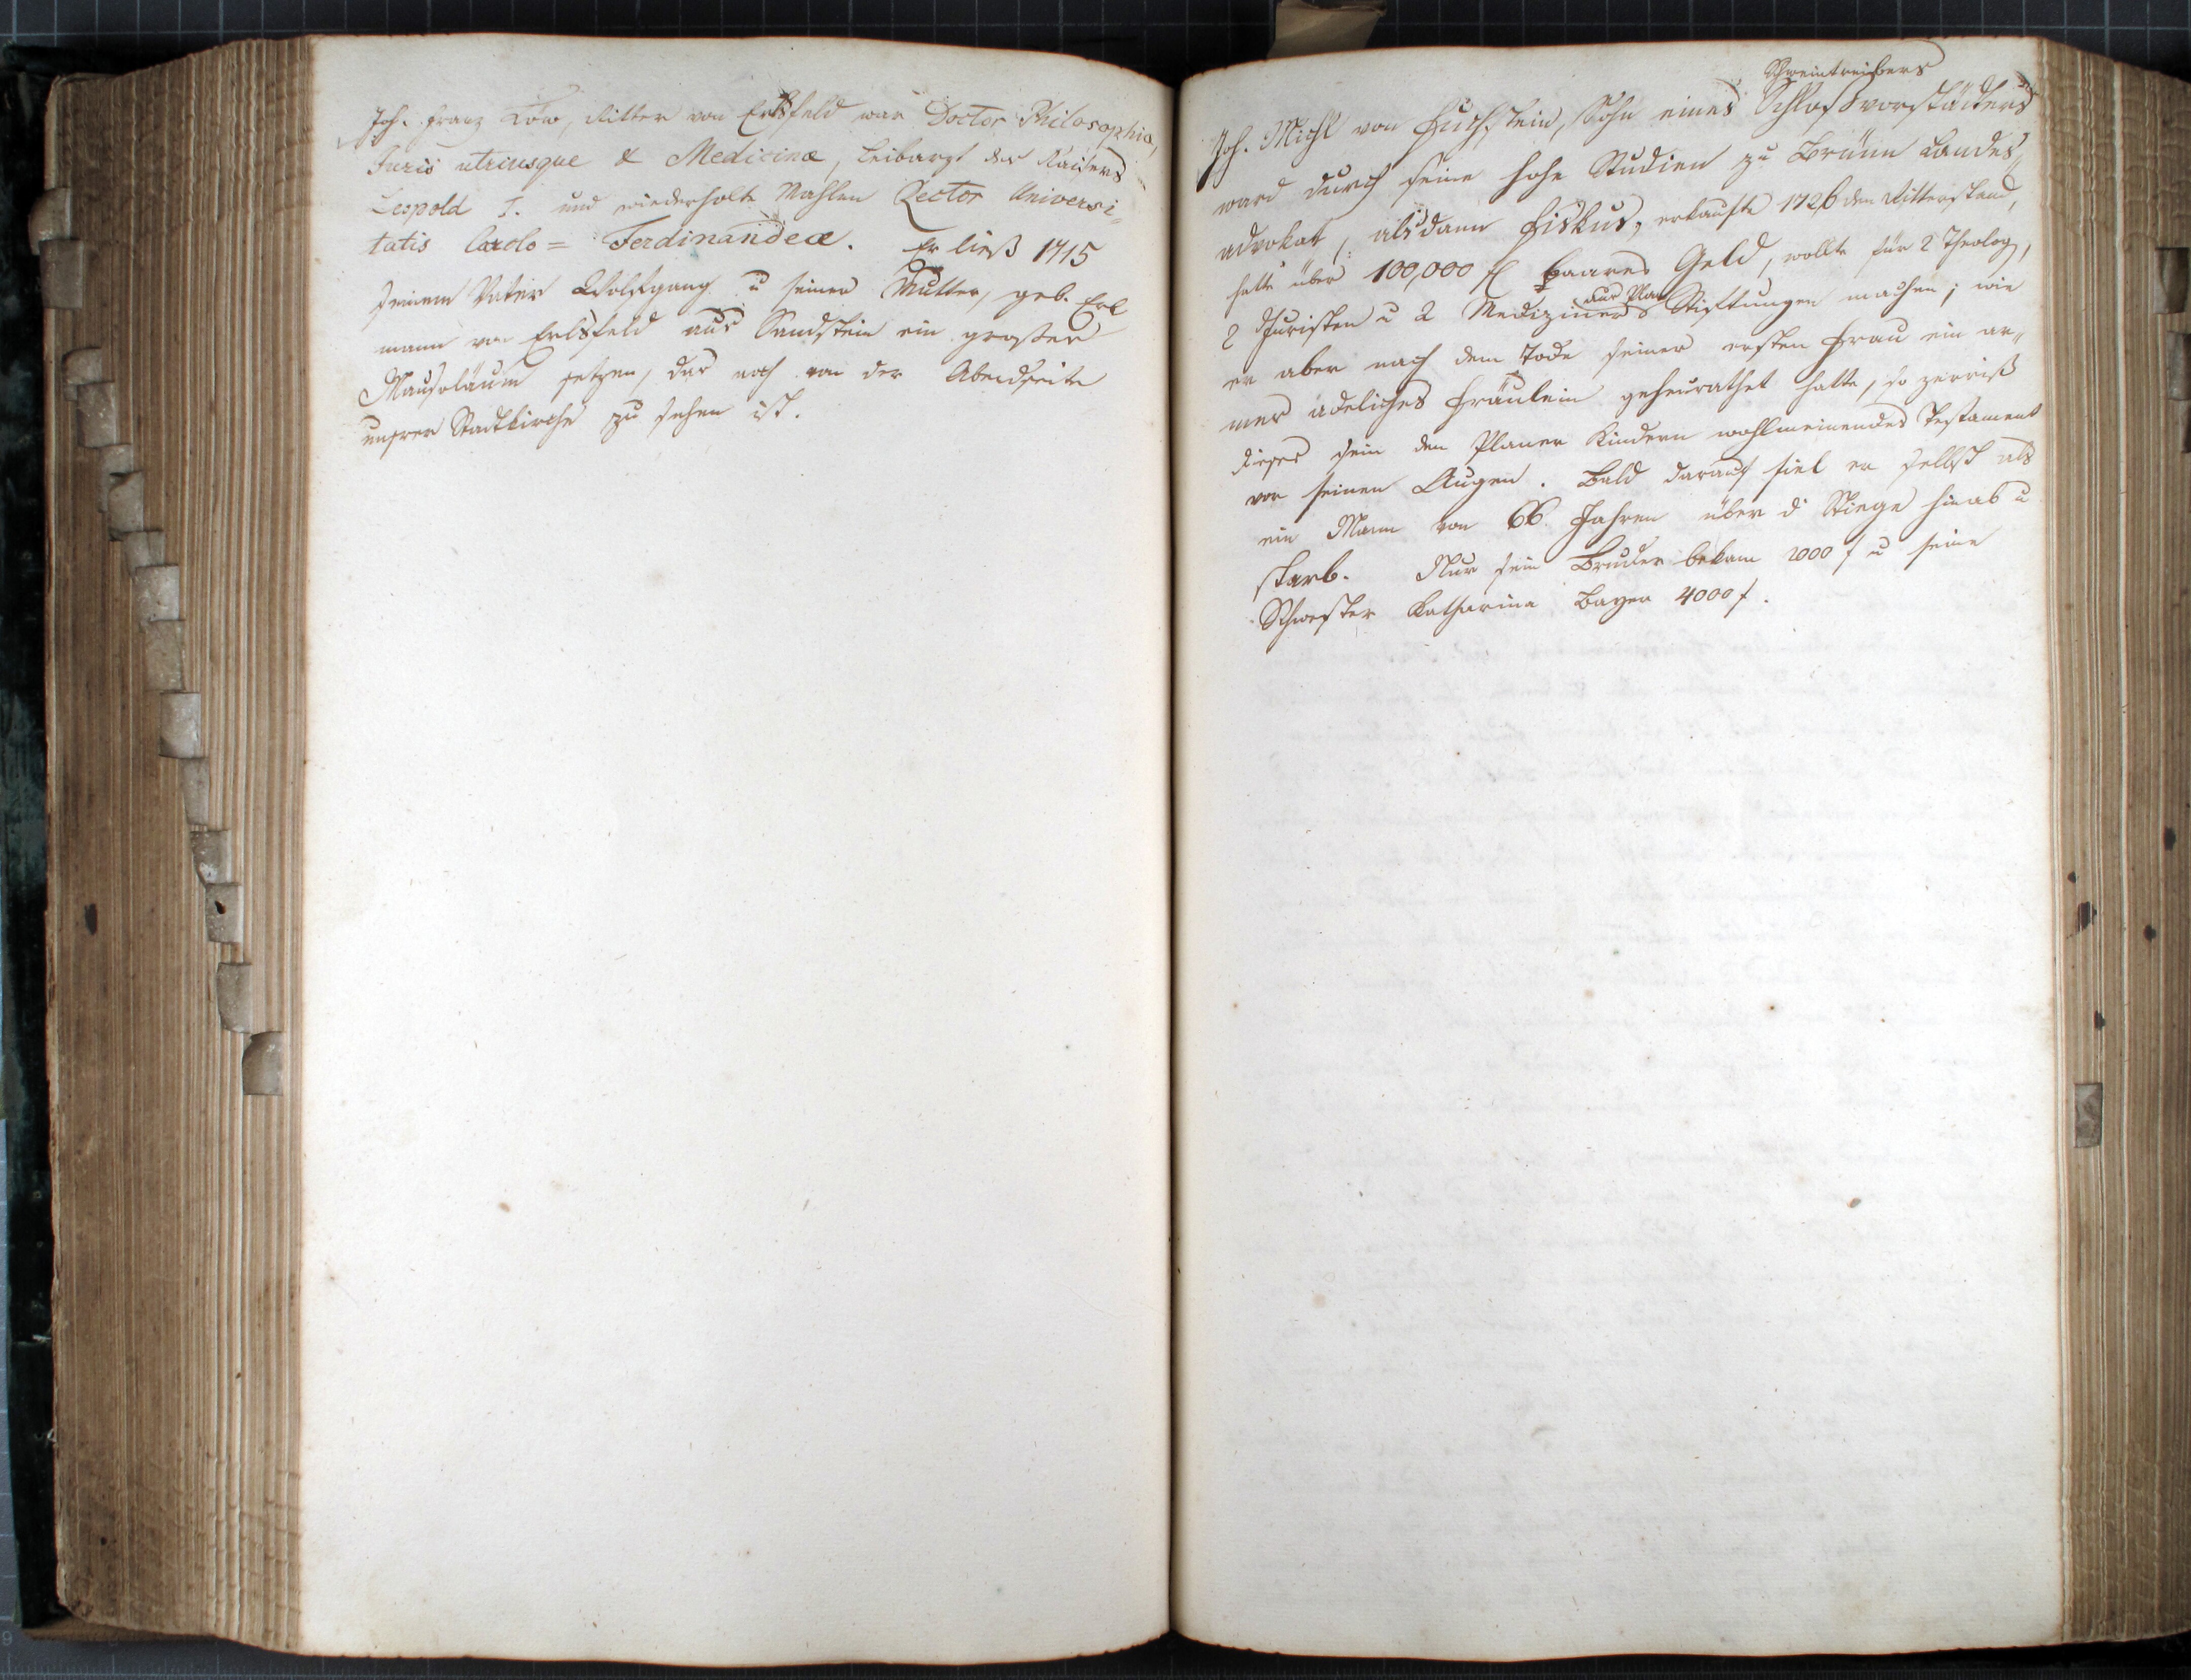 Joh. Franz Löw, Ritter von Erlsfeld war Doctor Philosophia,
Juris utriusque & Medicinæ, Leibarzt des Kaisers
Leopold I. und wiederholte Mahlen Rector Universi=
tatis Carolo=Ferdinandeæ. Er ließ 1715
seinem Vater Wolfgang u seiner Mutter, geb. Erl
mann von Erlsfeld aus Sandstein ein großes
Mausoläum setzen, das noch von der Abendseite
unsrer Stadtkirche zu sehen ist.
Schweintreibers
Joh. Michl von Fuchstein, Sohn eines Schloßvorstädters
ward durch seine hohe Studien zu Brünn Landes„
advokat, alsdann Fiskus, erkaufte 1726 den Ritterstand,
hatte über 100,000 fl baares Geld, wollte für 2 Theolog,
aus Plan
2 Juristen u 2 Mediziner Stiftungen machen; wie
er aber nach dem Tode seiner ersten Frau ein ar„
mes adeliches Fräulein geheurathet hatte, so zerriß
dieses sein den Planer Kindern wohlmeinendes Testament
vor seinen Augen. Bald darauf fiel er selbst als
ein Mann von 66 Jahren über d Stiege hinab u
starb. Nur sein Bruder bekam 2000 f u seine
Schwester Katharina Bayer 4000 f.